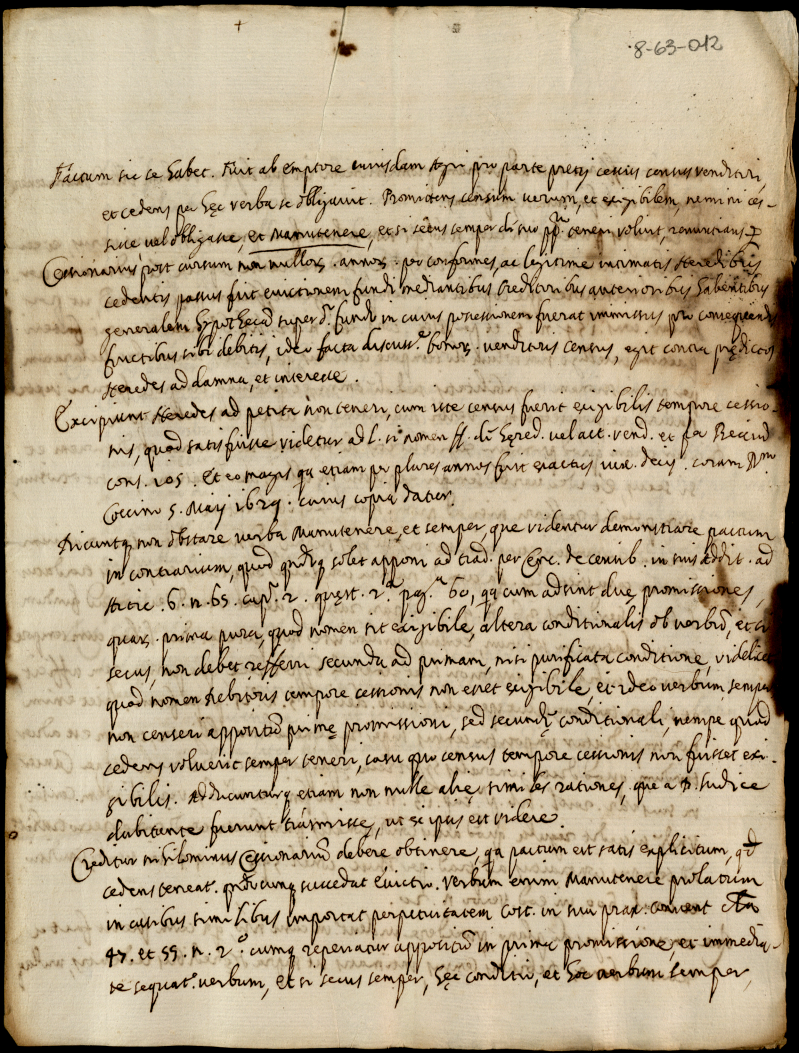 8-63-012
Factum sic se habet. Fuit ab emptore cuiusdam Agri pro parte pretij cessus census venditori,
et cedens per hęc verba se obligavit. Promittens censum verum, et exigibilem, nemini ces-
sisse vel obligasse, et Manutenere, et si secus semper de suo pp.º teneri voluit, renuncians
Cessionarius post cursum non nullor. annor. per conformes, ac legitime intimatis Heredibus
cedentis passus fuit evictionem fundi mediantibus Creditoribus anterioribus habentibus
generalem hypothecã super d.º fundo in cuius possessionem fuerat immissus pro consequendis
fructibus sibi debitis, ideo facta discuss.e bonor. venditoris census, egit contra prędictos
Heredes ad damna, et interesse.
Excipiunt Heredes ad petita non teneri, cum iste census fuerit exigibilis tempore cessio-
nis, quod satis fuisse videtur ad l. si nomen ff. de hęred. vel act. vend. et per
cons. 105. Et eo magis qa etiam per plures annos fuit exactus iux. decis. coram R.mo
Coccino 5. Maij 1629. cuius copia datur.
Dicuntq; non obstare verba Manutenere, et semper, que videntur demonstrare pactum
in contrarium, quod solet apponi ad trad. per Cenc. de censib. in suis addit. ad
6. n. 65. cap. 2. quęst. 2.ª pag. 60, qa cum adsint duę promissiones,
quar. prima pura, quod nomen sit exigibile, altera conditionalis ob verbũ, et si
secus, non debet referri secunda ad primam, nisi purificata conditione, videlicet
quod nomen Debitoris tempore cessionis non esset exigibile, et ideo verbum, semper
non censeri appositũ primę promissioni, sed secundę conditionali, nempe quod
cedens voluerit semper teneri, casu quo census tempore cessionis non fuisset exi-
gibilis. Adducunturq; etiam non nullę alię similes rationes, que a D. Iudice
dubitante fuerunt trãsmissę, ut se ipsis est videre.
Creditur nihilominus Cessionariũ debere obtinere, qa pactum est satis explicitum, qd
cedens teneat. quãdocumq; succedat Evictio. Verbum enim Manutenere prolatum
in casibus similibus importat perpetuitatem Cost. in sua prax. convent
47. et 59. n. 2.º cumq; reperiatur appositũ in prima promissione, et immedia-
te sequat. verbum, et si secus semper, hęc conditio, et hoc verbum semper,